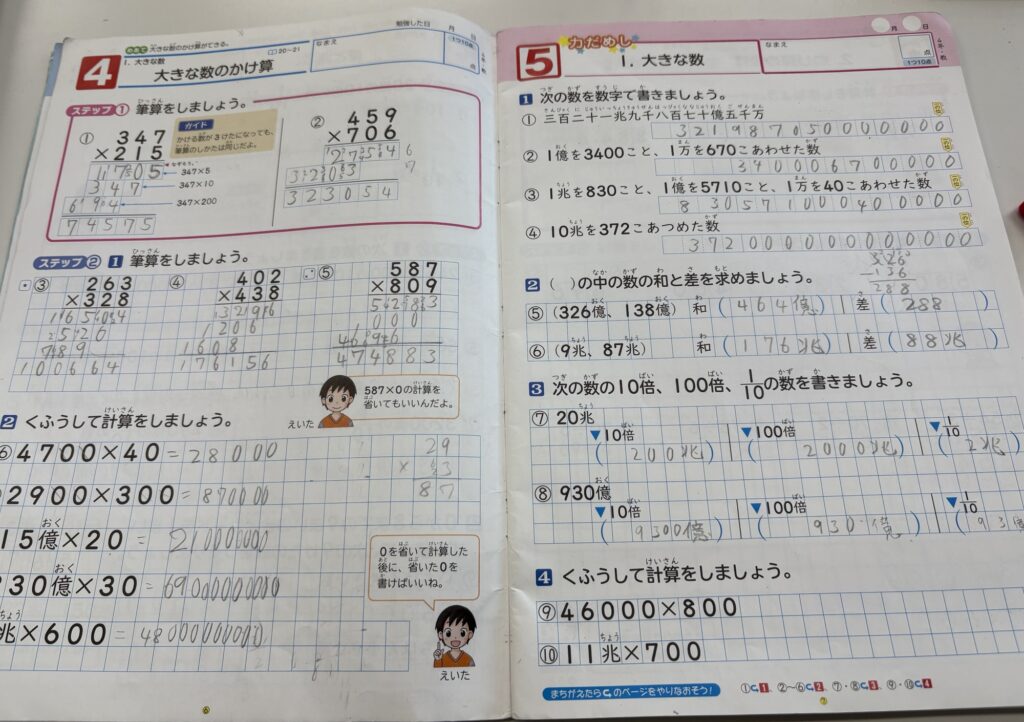 めあて 大きな数のかけ算ができる。
4
1. 大きな数
20~21
大きな数のかけ算
勉強した日 月 日
なまえ
1つ10点
点
ステップ1 筆算をしましょう。
① 347
×215
347×5
347
347×10
347×200
74575
ガイド
かける数が3けたになっても、
筆算のしかたは同じだよ。
② 459
×706
323054
ステップ2 1 筆算をしましょう。
③ 263
×328
100664
④ 402
×438
1206
1608
176156
⑤ 587
×809
000
474883
587×0の計算を
省いてもいいんだよ。
えいた
2 くふうして計算をしましょう。
⑥ 4700×40 = 28000
2900×300 = 870000
29
× 3
87
15億×20 =
30億×30 =
兆×600 =
0を省いて計算した
後に、省いた0を
書けばいいね。
えいた
6
5
力だめし
1. 大きな数
なまえ
月 日
点
1つ10点
1 次の数を数字で書きましょう。
① 三百二十一兆九千八百七十億五千万
321987050000000
② 1億を3400こと、1万を670こあわせた数
340006700000
③ 1兆を830こと、1億を5710こと、1万を40こあわせた数
830571000400000
④ 10兆を372こあつめた数
3720000000000000
2 ( )の中の数の和と差を求めましょう。
326
-136
288
⑤ (326億、138億) 和 (464億) 差 (288 )
⑥ (9兆、87兆) 和 (176兆) 差 (88兆)
3 次の数の10倍、100倍、1/10の数を書きましょう。
⑦ 20兆
▼10倍 ▼100倍 ▼1/10
(200兆) (2000兆) (2兆
⑧ 930億
▼10倍 ▼100倍 ▼1/10
(9300億) (930 億 (93億
4 くふうして計算をしましょう。
⑨ 46000×800
⑩ 11兆×700
まちがえたらのページをやりなおそう!
①1、②~⑥2、⑦・⑧3、⑨・⑩4
7